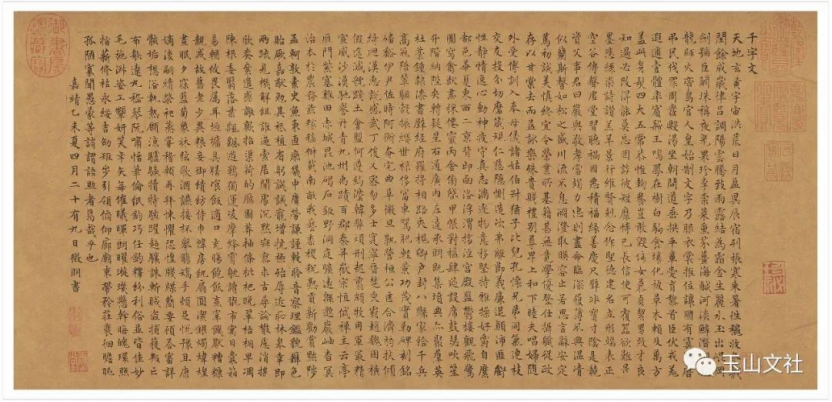 千字文
天地玄黃宇宙洪荒日月盈昃辰宿列張寒來暑往秋收冬藏
閏餘成歲律呂調陽雲騰致雨露結為霜金生麗水玉出崑岡
劍號巨闕珠稱夜光果珍李柰菜重芥薑海鹹河淡鱗潛羽翔
龍師火帝鳥官人皇始制文字乃服衣裳推位讓國有虞陶唐
弔民伐罪周發殷湯坐朝問道垂拱平章愛育黎首臣伏戎羌
遐邇壹體率賓歸王鳴鳳在樹白駒食場化被草木賴及萬方
蓋此身髮四大五常恭惟鞠養豈敢毀傷女慕貞潔男效才良
知過必改得能莫忘罔談彼短靡恃己長信使可覆器欲難量
墨悲絲染詩讚羔羊景行維賢克念作聖德建名立形端表正
空谷傳聲虛堂習聽禍因惡積福緣善慶尺璧非寶寸陰是競
資父事君曰嚴與敬孝當竭力忠則盡命臨深履薄夙興溫凊
似蘭斯馨如松之盛川流不息淵澄取映容止若思言辭安定
篤初誠美慎終宜令榮業所基籍甚無竟學優登仕攝職從政
存以甘棠去而益詠樂殊貴賤禮別尊卑上和下睦夫唱婦隨
外受傅訓入奉母儀諸姑伯叔猶子比兒孔懷兄弟同氣連枝
交友投分切磨箴規仁慈隱惻造次弗離節義廉退顛沛匪虧
性靜情逸心動神疲守真志滿逐物意移堅持雅操好爵自縻
都邑華夏東西二京背邙面洛浮渭據涇宮殿盤鬱樓觀飛驚
圖寫禽獸畫彩仙靈丙舍傍啟甲帳對楹肆筵設席鼓瑟吹笙
升階納陛弁轉疑星右通廣內左達承明既集墳典亦聚群英
杜稾鍾隸漆書壁經府羅將相路俠槐卿戶封八縣家給千兵
高冠陪輦驅轂振纓世祿侈富車駕肥輕策功茂實勒碑刻銘
磻溪伊尹佐時阿衡奄宅曲阜微旦孰營桓公匡合濟弱扶傾
綺迴漢惠說感武丁俊乂密勿多士寔寧晉楚更霸趙魏困橫
假途滅虢踐土會盟何遵約法韓弊煩刑起翦頗牧用軍最精
宣威沙漠馳譽丹青九州禹跡百郡秦并嶽宗恒岱禪主云亭
雁門紫塞雞田赤城昆池碣石鉅野洞庭曠遠綿邈巖岫杳冥
治本於農務茲稼穡俶載南畝我藝黍稷稅熟貢新勸賞黜陟
孟軻敦素史魚秉直庶幾中庸勞謙謹敕聆音察理鑑貌辨色
貽厥嘉猷勉其祗植省躬譏誡寵增抗極殆辱近恥林皋幸即
兩疏見機解組誰逼索居閒處沉默寂寥求古尋論散慮逍遙
欣奏累遣慼謝歡招渠荷的歷園莽抽條枇杷晚翠梧桐早凋
陳根委翳落葉飄颻遊鵾獨運凌摩絳霄耽讀翫市寓目囊箱
易輶攸畏屬耳垣牆具膳餐飯適口充腸飽飫烹宰飢厭糟糠
親戚故舊老少異糧妾御績紡侍巾帷房紈扇圓潔銀燭煒煌
晝眠夕寐藍筍象床絃歌酒讌接杯舉觴矯手頓足悅豫且康
嫡後嗣續祭祀烝嘗稽顙再拜悚懼恐惶牋牒簡要顧答審詳
骸垢想浴執熱願涼驢騾犢特駭躍超驤誅斬賊盜捕獲叛亡
布射遼丸嵇琴阮嘯恬筆倫紙鈞巧任釣釋紛利俗竝皆佳妙
毛施淑姿工顰妍笑年矢每催曦暉朗曜璇璣懸斡晦魄環照
指薪修祜永綏吉劭矩步引領俯仰廊廟束帶矜莊徘徊瞻眺
孤陋寡聞愚蒙等誚謂語助者焉哉乎也
嘉靖乙未夏四月二十有九日徵明書
玉山文社